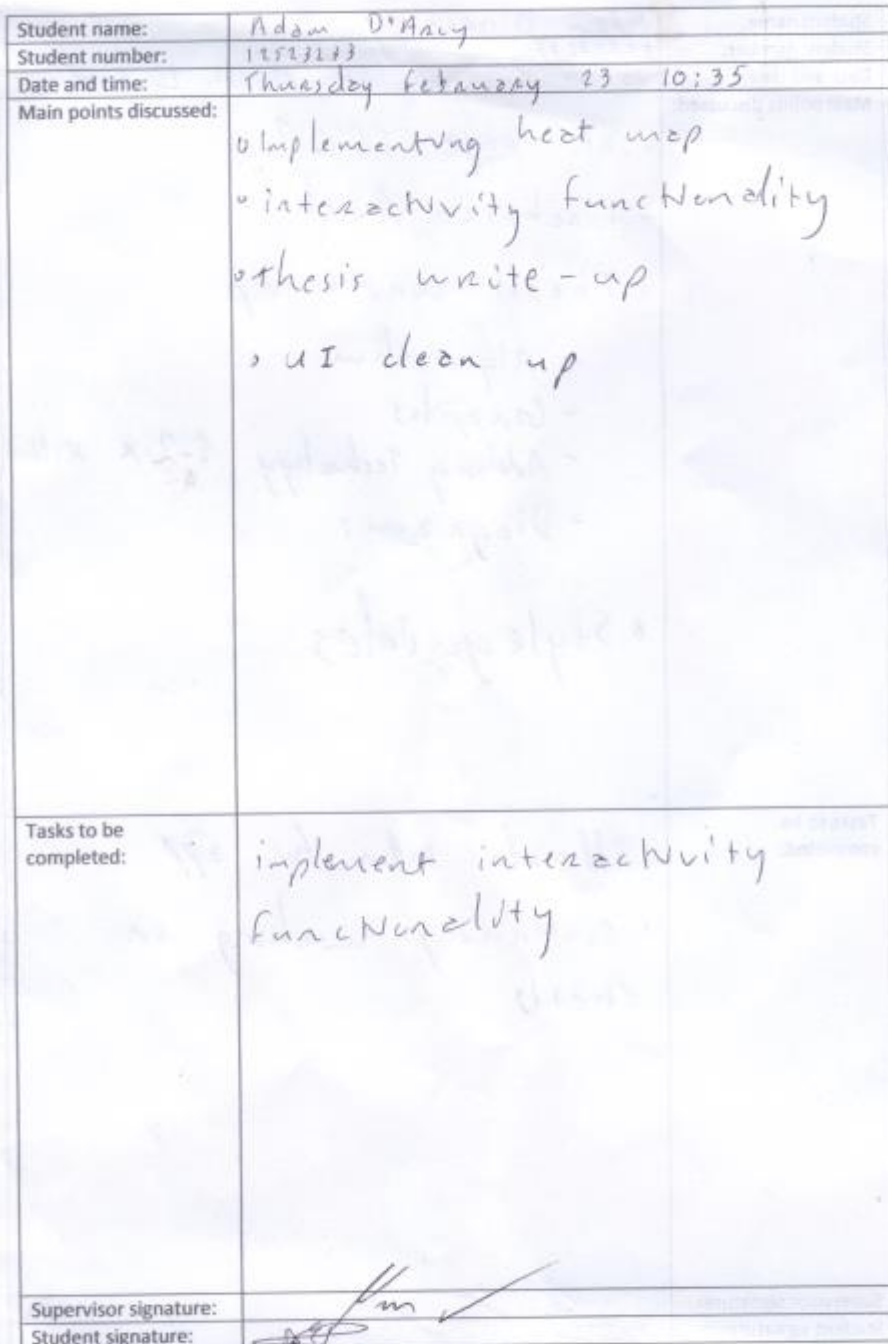 Student name: Adam D'Arcy
Student number:
Date and time: Thursday February 23 10:35
Main points discussed:
Implementing heat map
interactivity functionality
thesis write-up
UI clean up
Tasks to be
completed:
implement interactivity
functionality
Supervisor signature:
Student signature: